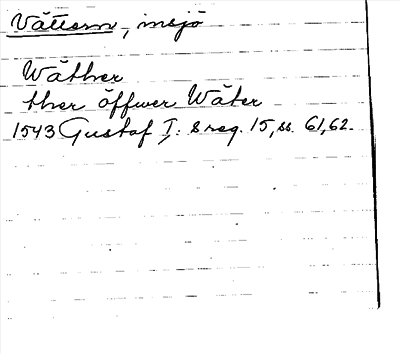 Vättern, insjö
Wäther
ther öffwer Wäter
1543 Gustaf I: s reg. 15, ss. 61, 62.